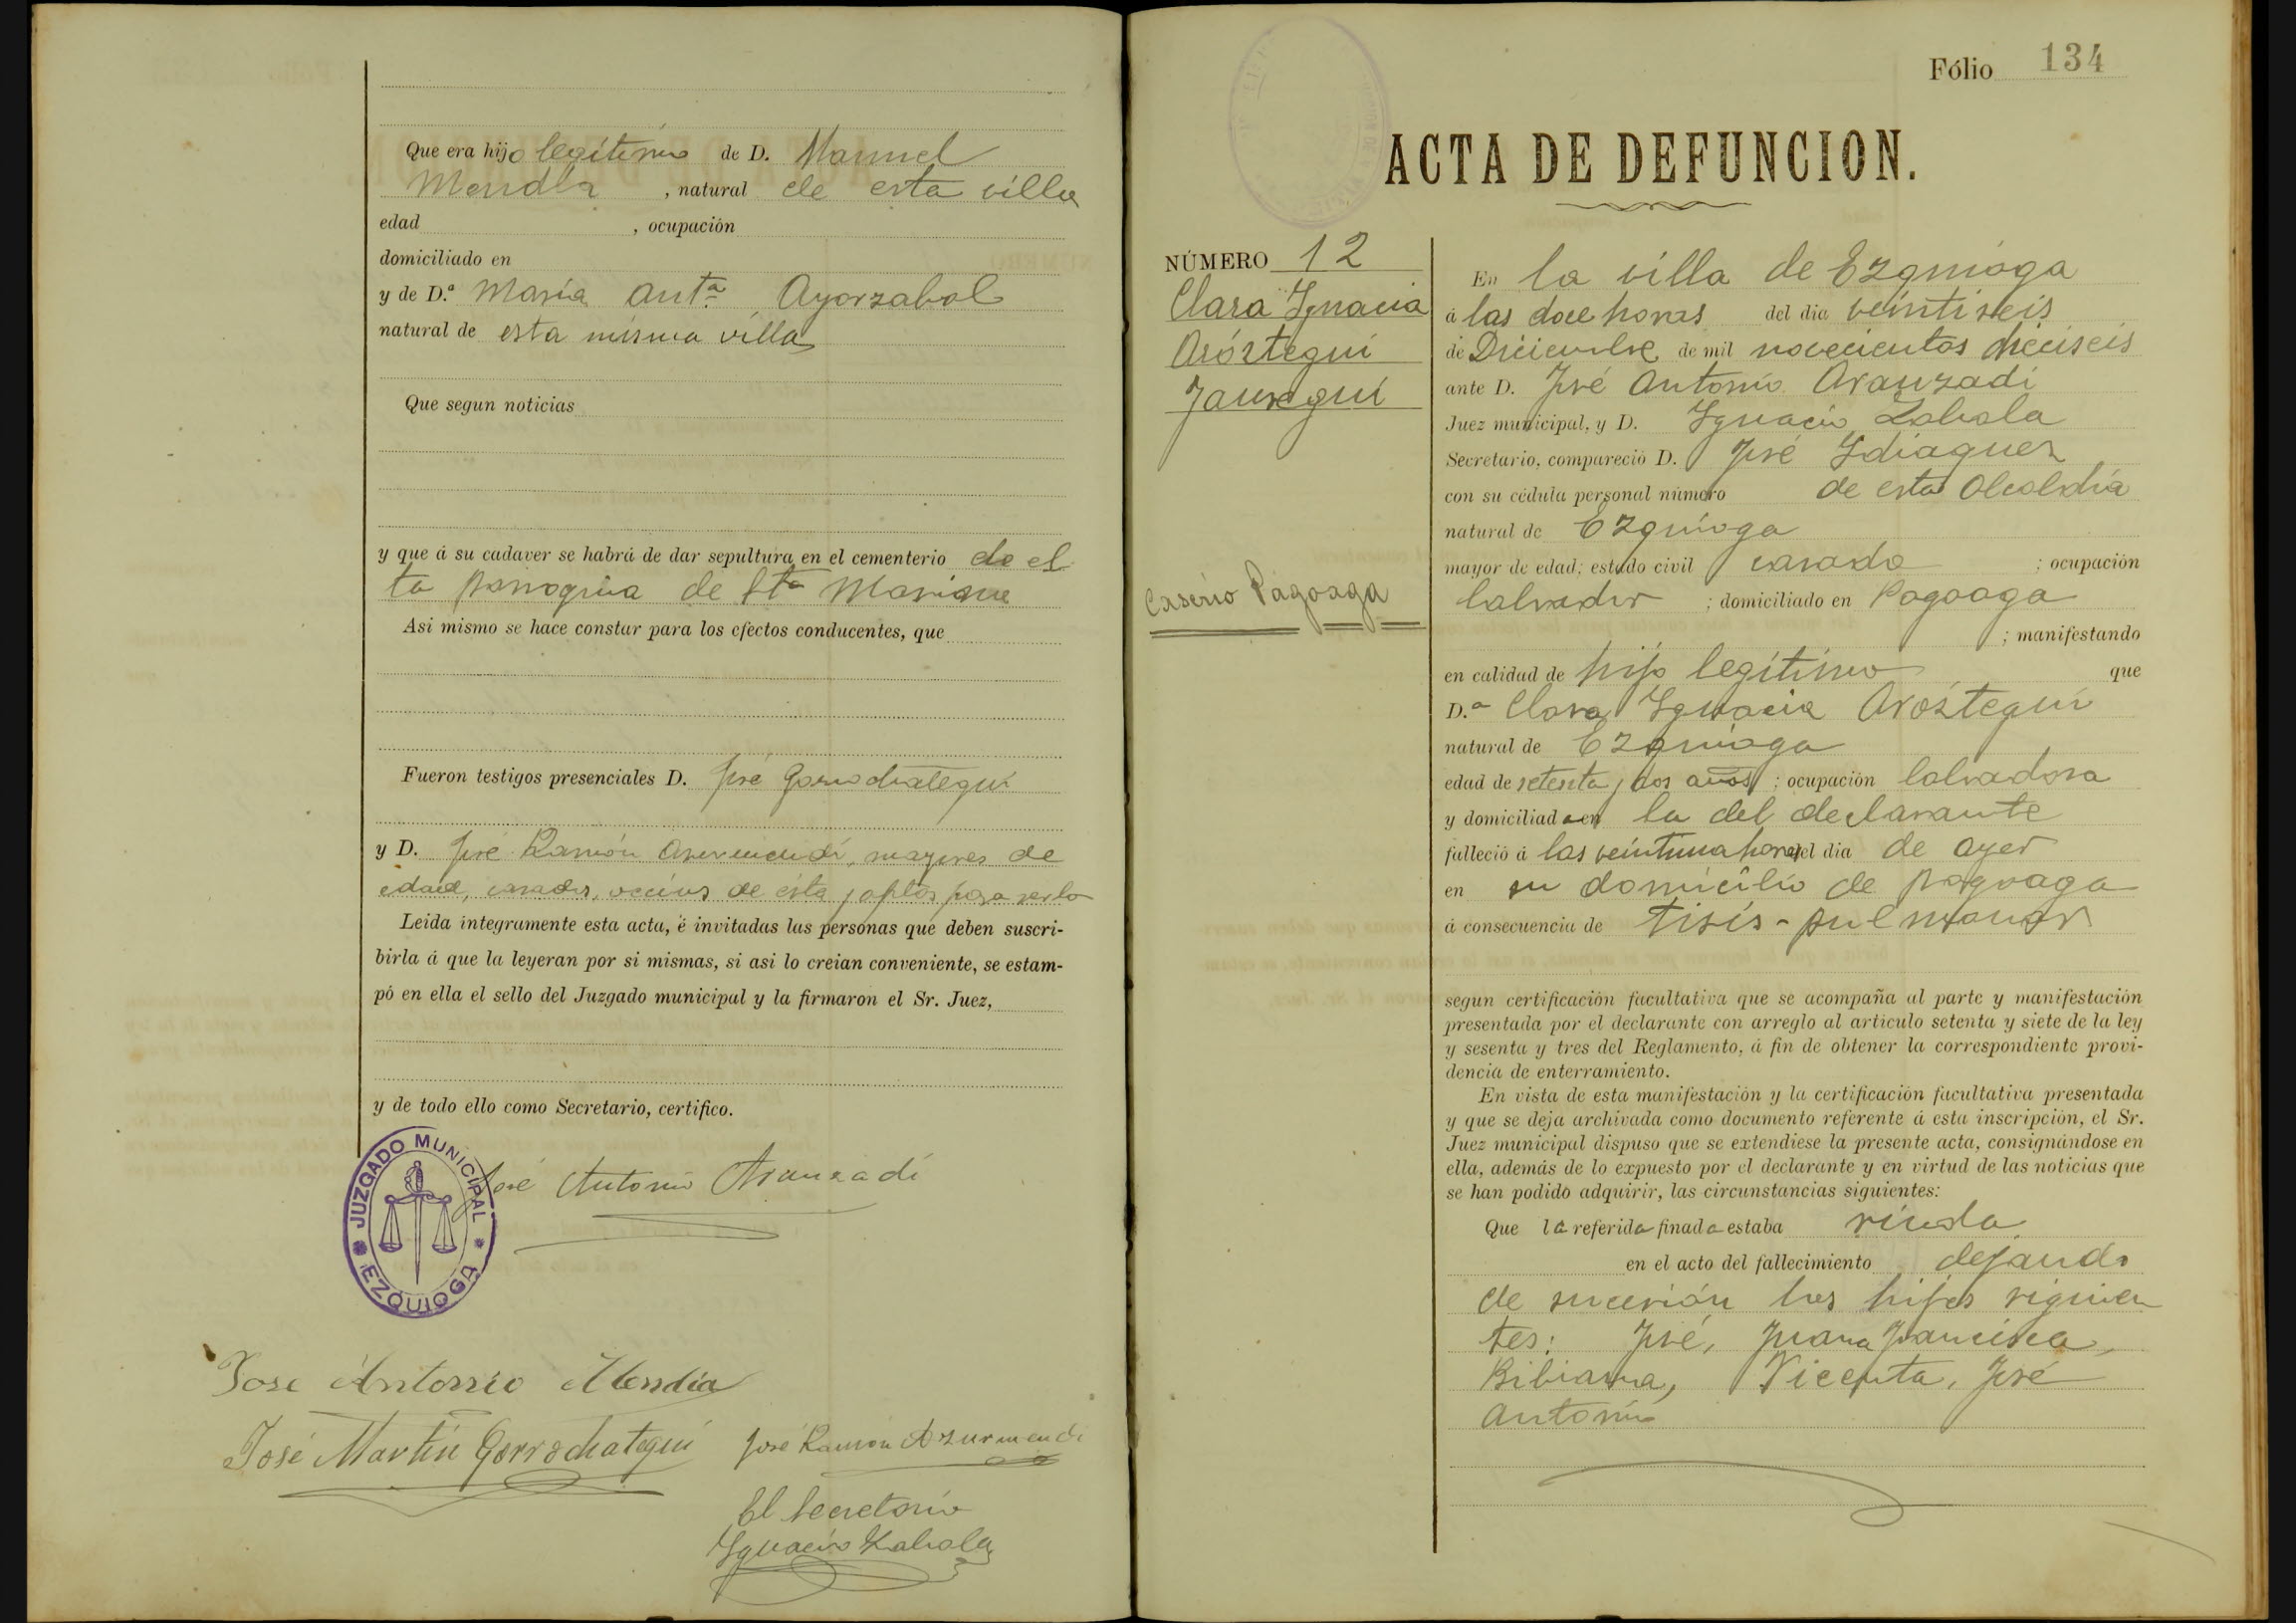 Que era hijo legítimo de D. Manuel
Mendía , natural de esta villa
edad , ocupación
domiciliado en
y de D.ª María Ant.ª Ayorzabal
natural de esta misma villa
Que segun noticias
y que á su cadaver se habrá de dar sepultura en el cementerio de es
ta parroquia de Sta
Asi mismo se hace constar para los efectos conducentes, que
Fueron testigos presenciales D. José Gorrochategui
y D. José Ramón Azurmendi, mayores de
edad, casados, vecinos de ésta y aptos para serlo
Leida integramente esta acta, é invitadas las personas que deben suscri-
birla á que la leyeran por si mismas, si asi lo creian conveniente, se estam-
pó en ella el sello del Juzgado municipal y la firmaron el Sr. Juez,
y de todo ello como Secretario, certifico.
JUZGADO MUNICIPAL
EZQUIOGA
José Antonio Aranzadi
Jose Antonio Mendía
José Martín Gorrochategui
José Ramón Azurmendi
El Secretario
Ignacio Zabala
Fólio 134
ACTA DE DEFUNCION.
NÚMERO 12
Clara Ignacia
Aróstegui
Jauregui
Caserío Pagoaga
En la villa de Ezquioga
á las doce horas del dia veintiseis
de Diciembre de mil novecientos dieciseis
ante D. José Antonio Aranzadi
Juez municipal, y D. Ignacio Zabala
Secretario, compareció D. José Idiaquez
con su cédula personal número de esta Alcaldía
natural de Ezquioga
mayor de edad; estado civil casado ; ocupación
labrador ; domiciliado en Pagoaga
; manifestando
en calidad de hijo legítimo que
D.ª Clara Ignacia Aróstegui
natural de Ezquioga
edad de setenta y dos años ; ocupación labradora
y domiciliada en la del declarante
falleció á las veintiuna horas del dia de ayer
en su domicilio de Pagoaga
á consecuencia de tisis-pulmonar
segun certificación facultativa que se acompaña al parte y manifestación
presentada por el declarante con arreglo al articulo setenta y siete de la ley
y sesenta y tres del Reglamento, á fin de obtener la correspondiente provi-
dencia de enterramiento.
En vista de esta manifestación y la certificación facultativa presentada
y que se deja archivada como documento referente á esta inscripción, el Sr.
Juez municipal dispuso que se extendiese la presente acta, consignándose en
ella, además de lo expuesto por el declarante y en virtud de las noticias que
se han podido adquirir, las circunstancias siguientes:
Que la referida finada estaba viuda
en el acto del fallecimiento dejando
de sucesión los hijos siguien
tes: José, Juana Francisca,
Bibiana, Vicenta, José
Antonio